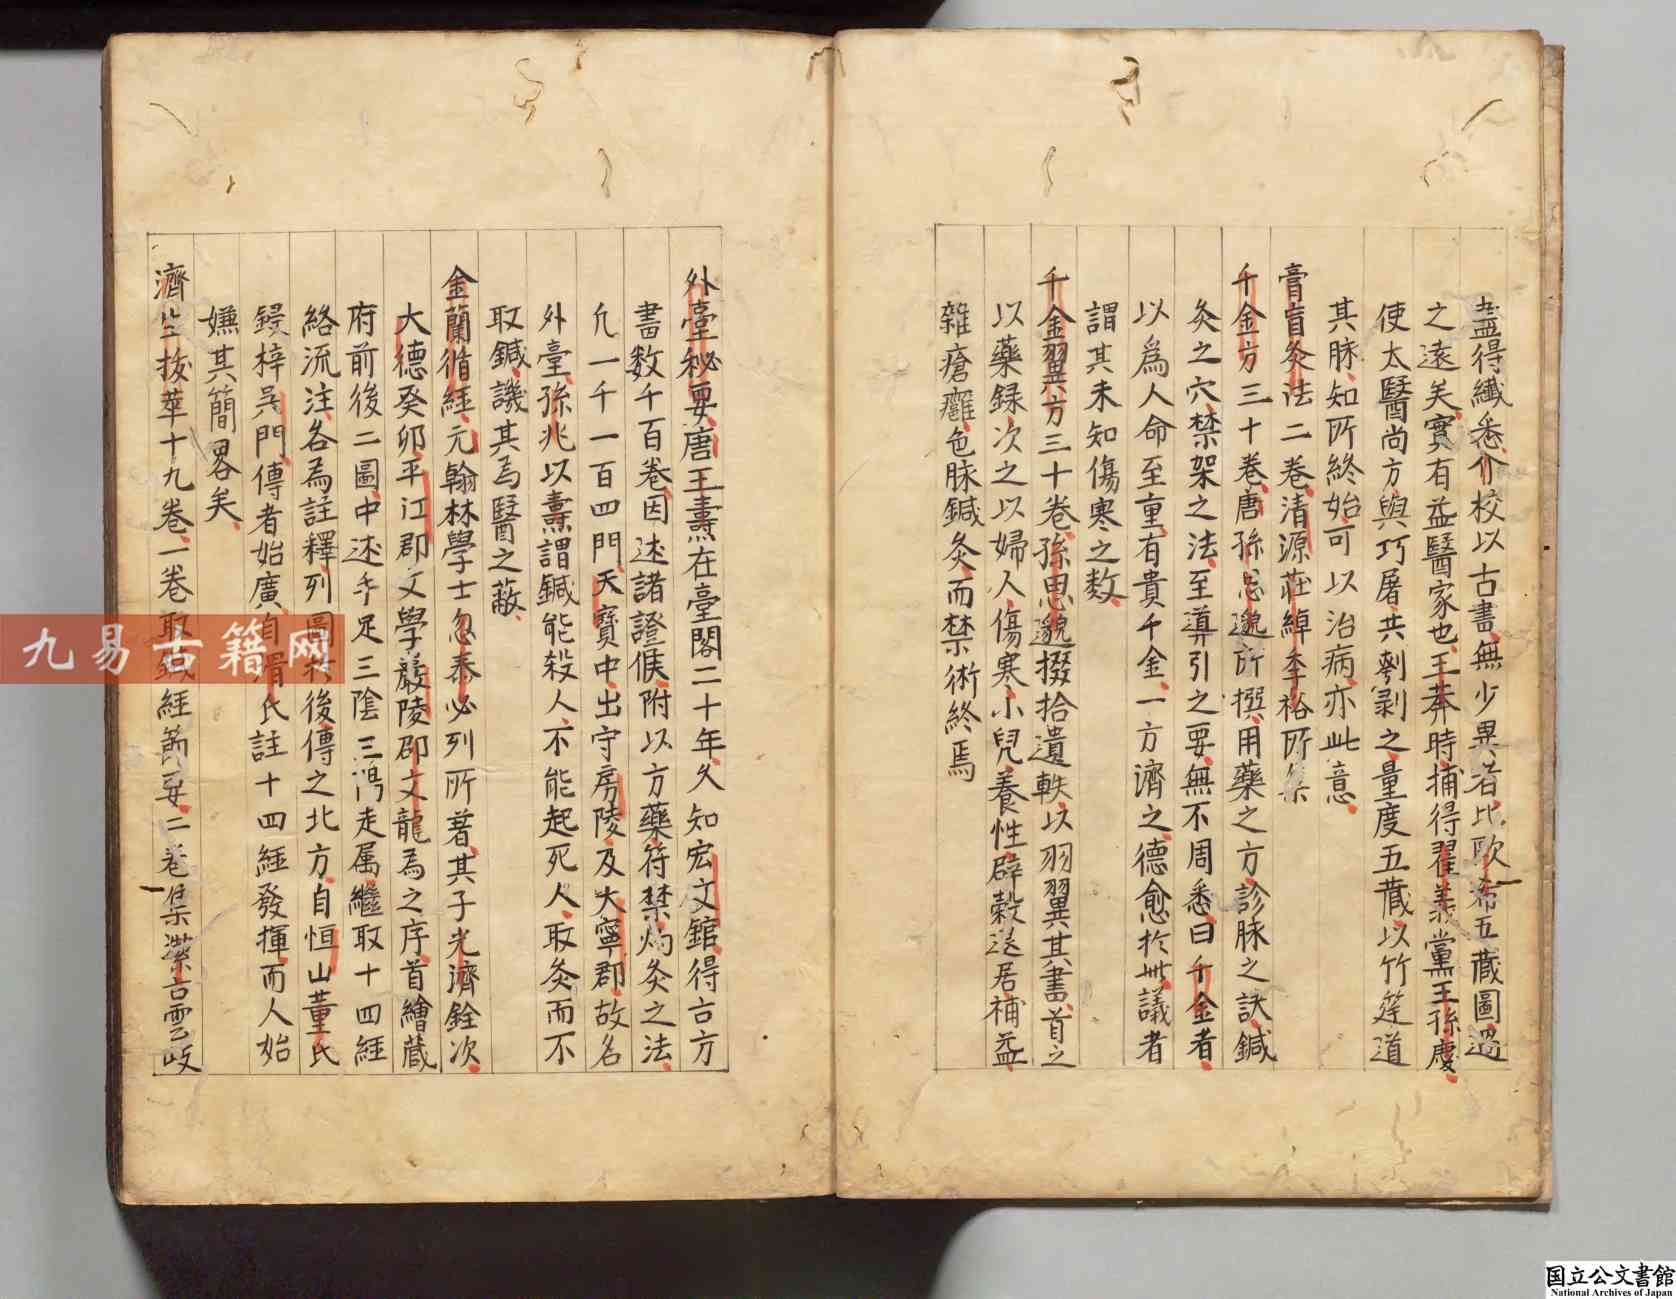 盡得纖悉介校以古書無少異者比歐希五藏圖過
之遠矣實有益醫家也王莽時捕得翟義黨王孫慶
使太醫尚方與巧屠共刳剥之量度五藏以竹筳道
其脉知所終始可以治病亦此意
膏盲灸法二卷清源莊綽季裕所集
千金方三十卷唐孫思邈所撰用藥之方診脉之訣鍼
灸之穴禁架之法至導引之要無不周悉曰千金者
以爲人命至重有貴千金一方濟之德愈於此議者
謂其未知傷寒之数
千金翼方三十卷孫思邈掇拾遺軼以羽翼其書首之
以藥録次之以婦人傷寒小兒養性辟榖退居補益
雜瘡癰色脉鍼灸而禁術終焉
外臺秘要唐王燾在臺閣二十年久知宏文館得古方
書数千百卷因述諸證候附以方藥符禁灼灸之法
凢一千一百四門天寳中出守房陵及大寧郡故名
外臺孫兆以燾謂鍼能殺人不能起死人取灸而不
取鍼譏其爲醫之蔽
金蘭循經元翰林學士忽泰必列所著其子光濟銓次
大德癸卯平江郡文學嚴陵邵文龍為之序首繪藏
府前後二圖中述手足三陰三陽走属繼取十四經
絡流注各為註釋列圖於後傳之北方自恒山董氏
鋟梓吳門傳者始廣自滑氏註十四經發揮而人始
嫌其簡畧矣
濟生拔萃十九卷一卷取鍼經節要二卷集潔古雲岐
九易古籍网
国立公文書館
National Archives of Japan